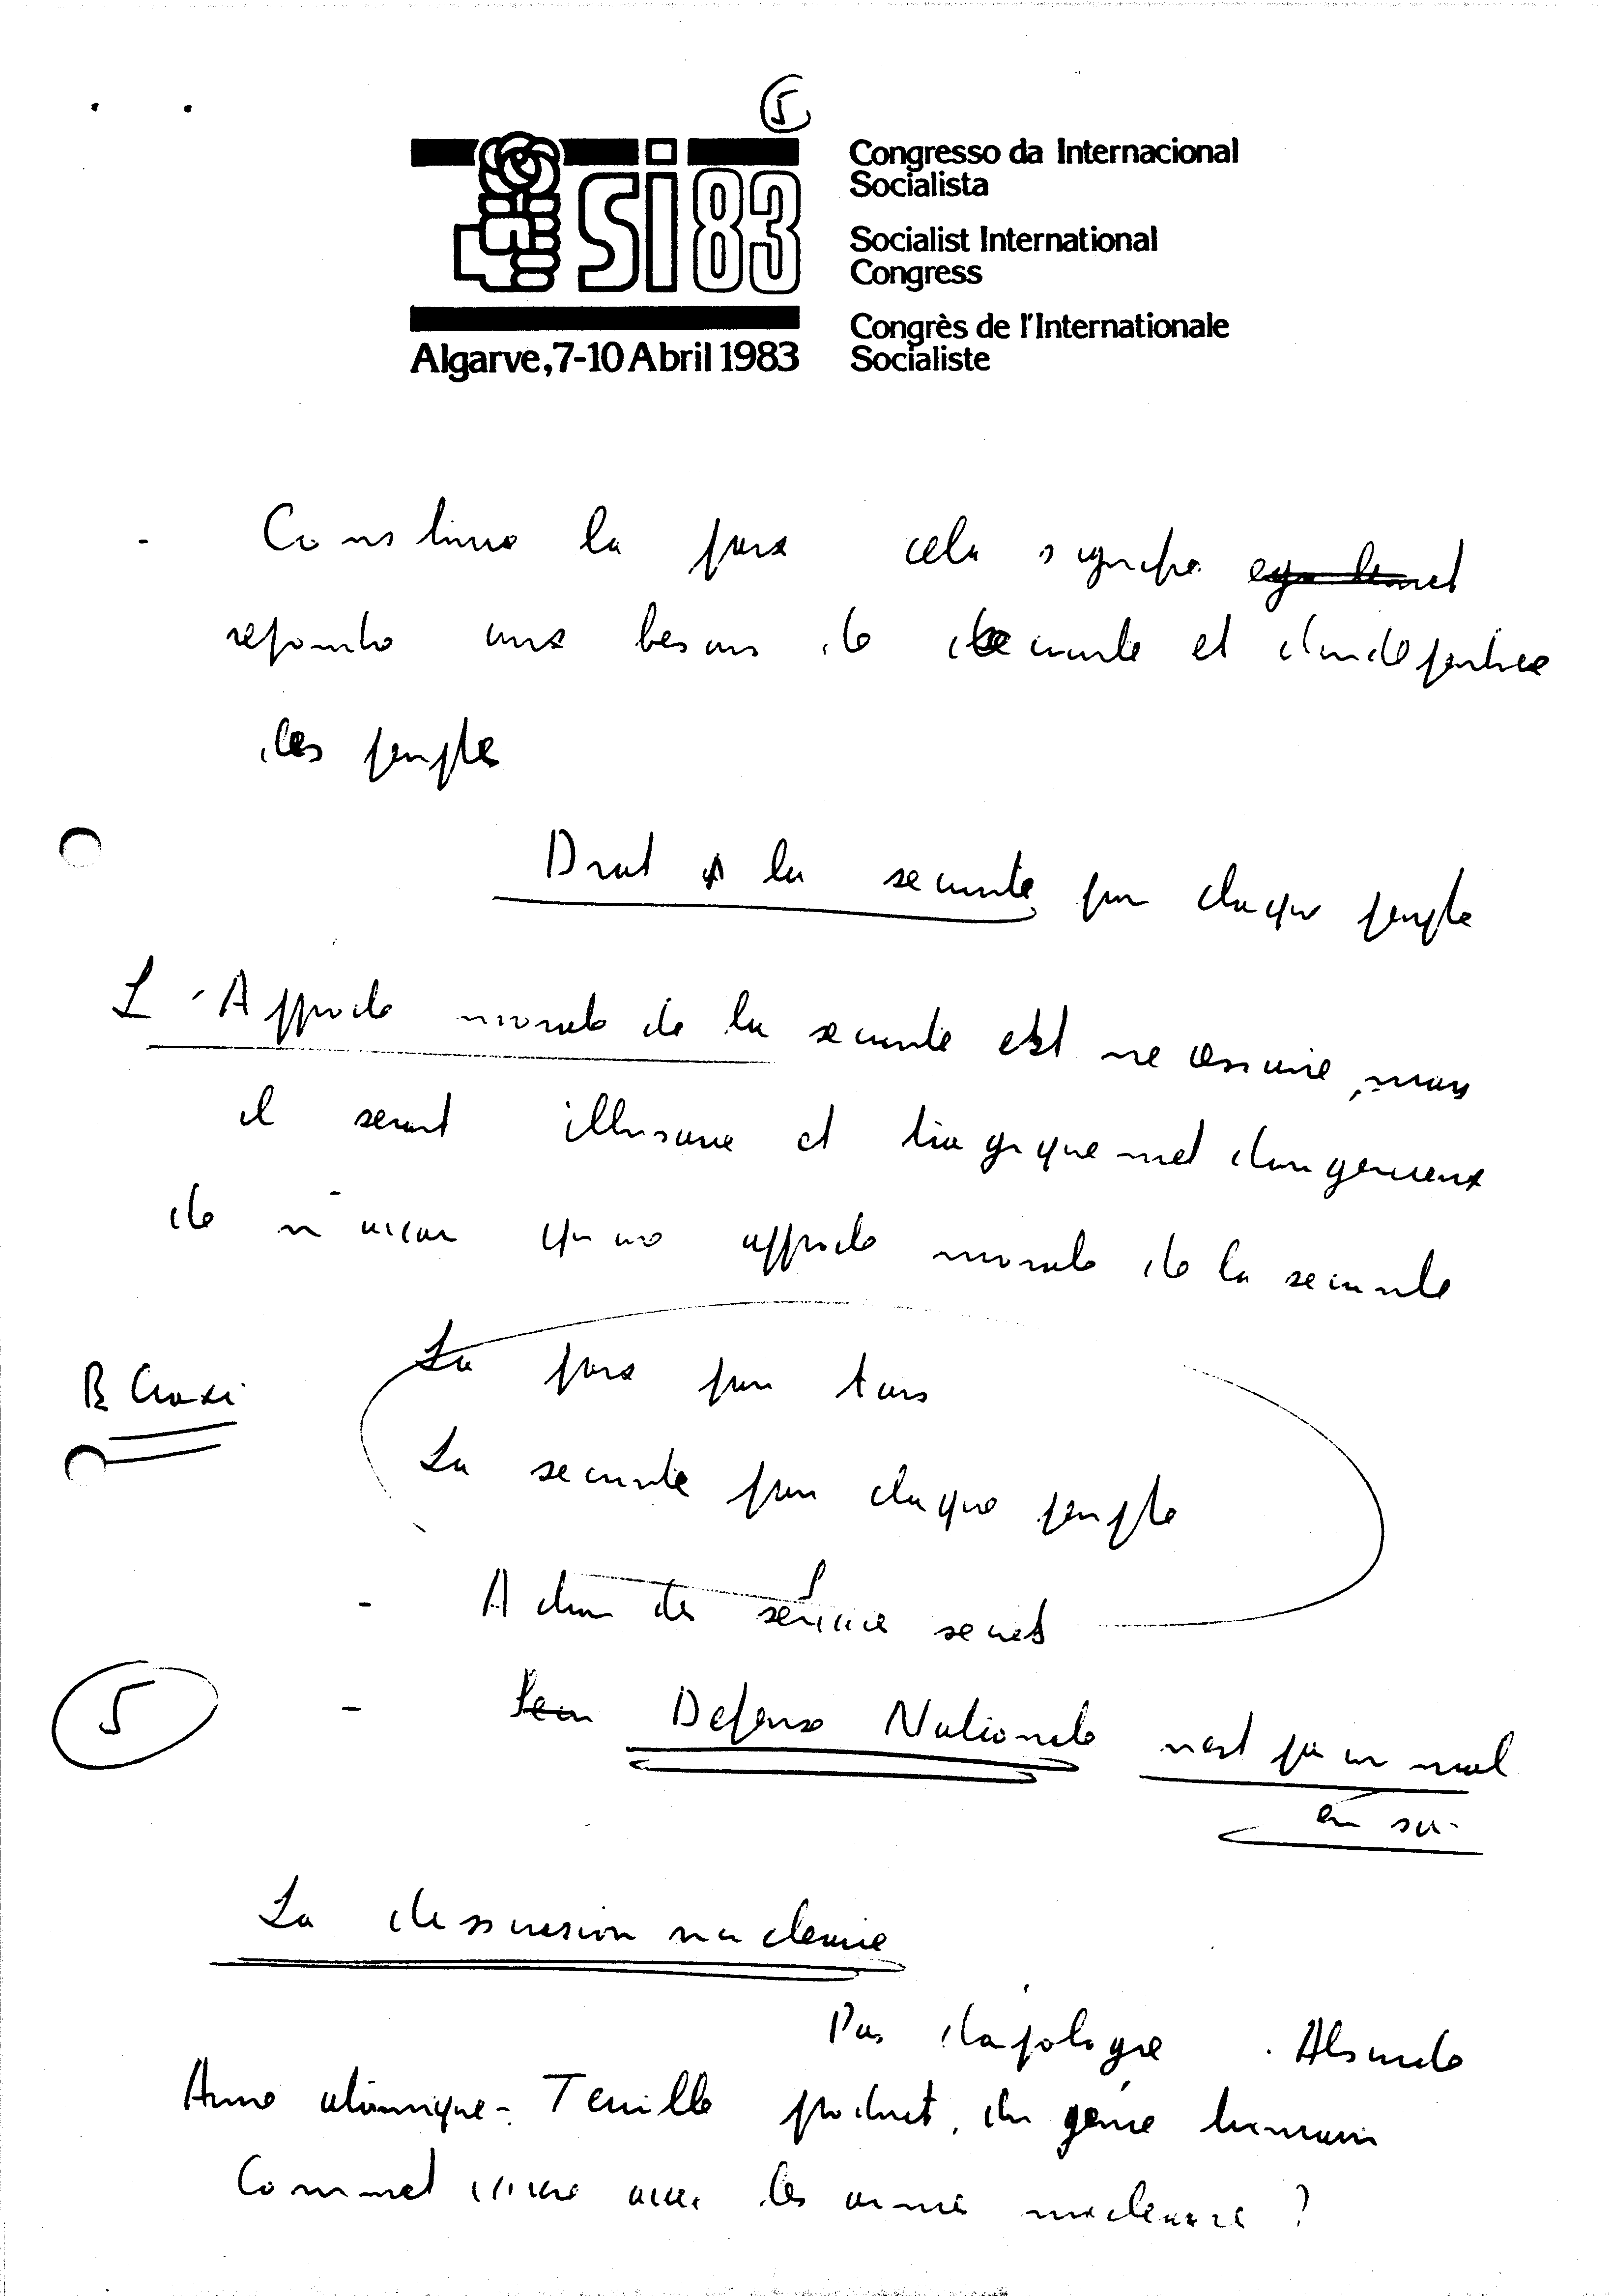 5
SI 83
Congresso da Internacional
Socialista
Socialist International
Congress
Congrès de l'Internationale
Socialiste
Algarve, 7-10 Abril 1983
- Construire la paix cela signifie egalement
repondre aux besoins de securite et d'independance
des peuples
Droit à la securite pour chaque peuple
L'Approche morale de la securite est necessaire, mais
il serait illusoire et tragiquement dangereux
de n'avoir qu'une approche morale de la securite
B Craxi
La paix pour tous
La securite pour chaque peuple
- Action des services secrets
5
- Defense Nationale n'est pas un mal
en soi
La dissuasion nucleaire
Pas d'apologie. Absurde
Arme atomique - Terrible produit du génie humain
Comment vivre avec les armes nucleaires ?